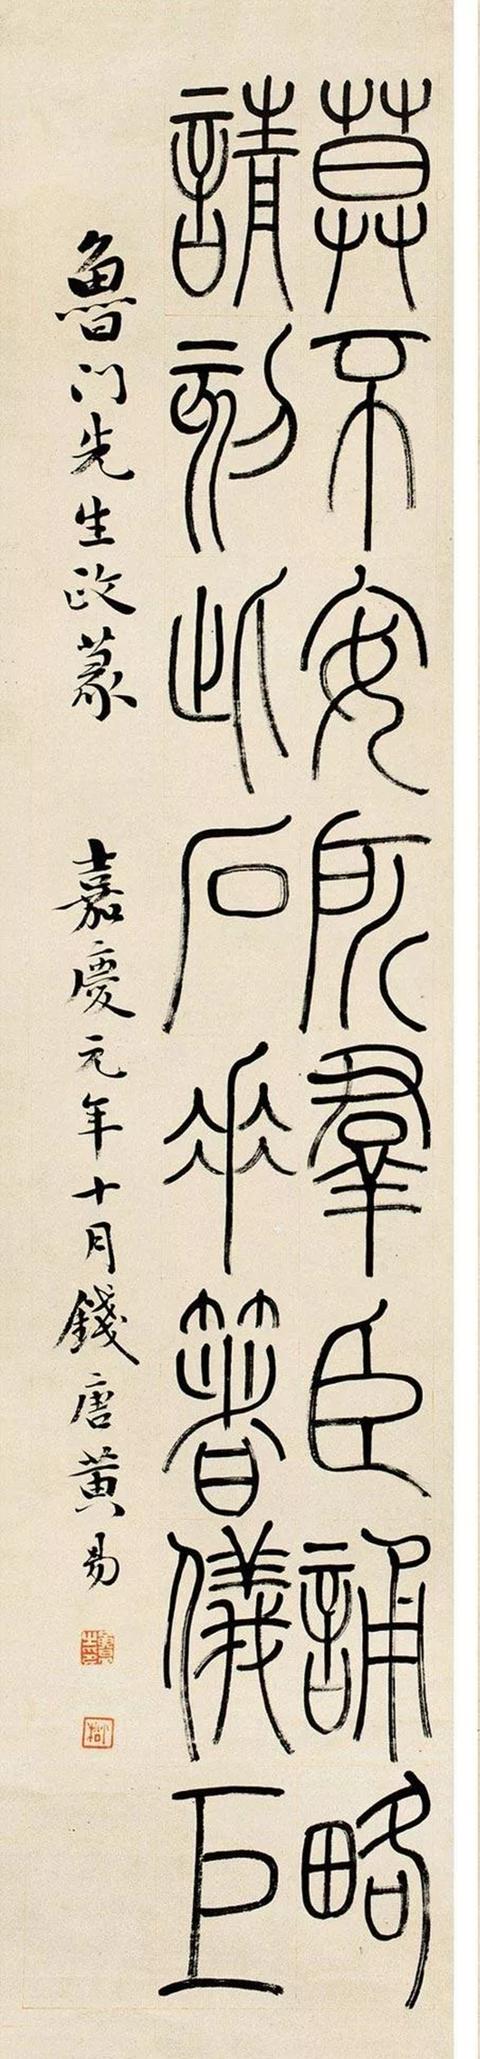 莫不安所羣臣誦略
請刻此石垂著儀巨
魯門先生政篆 嘉慶元年十月錢唐黃易